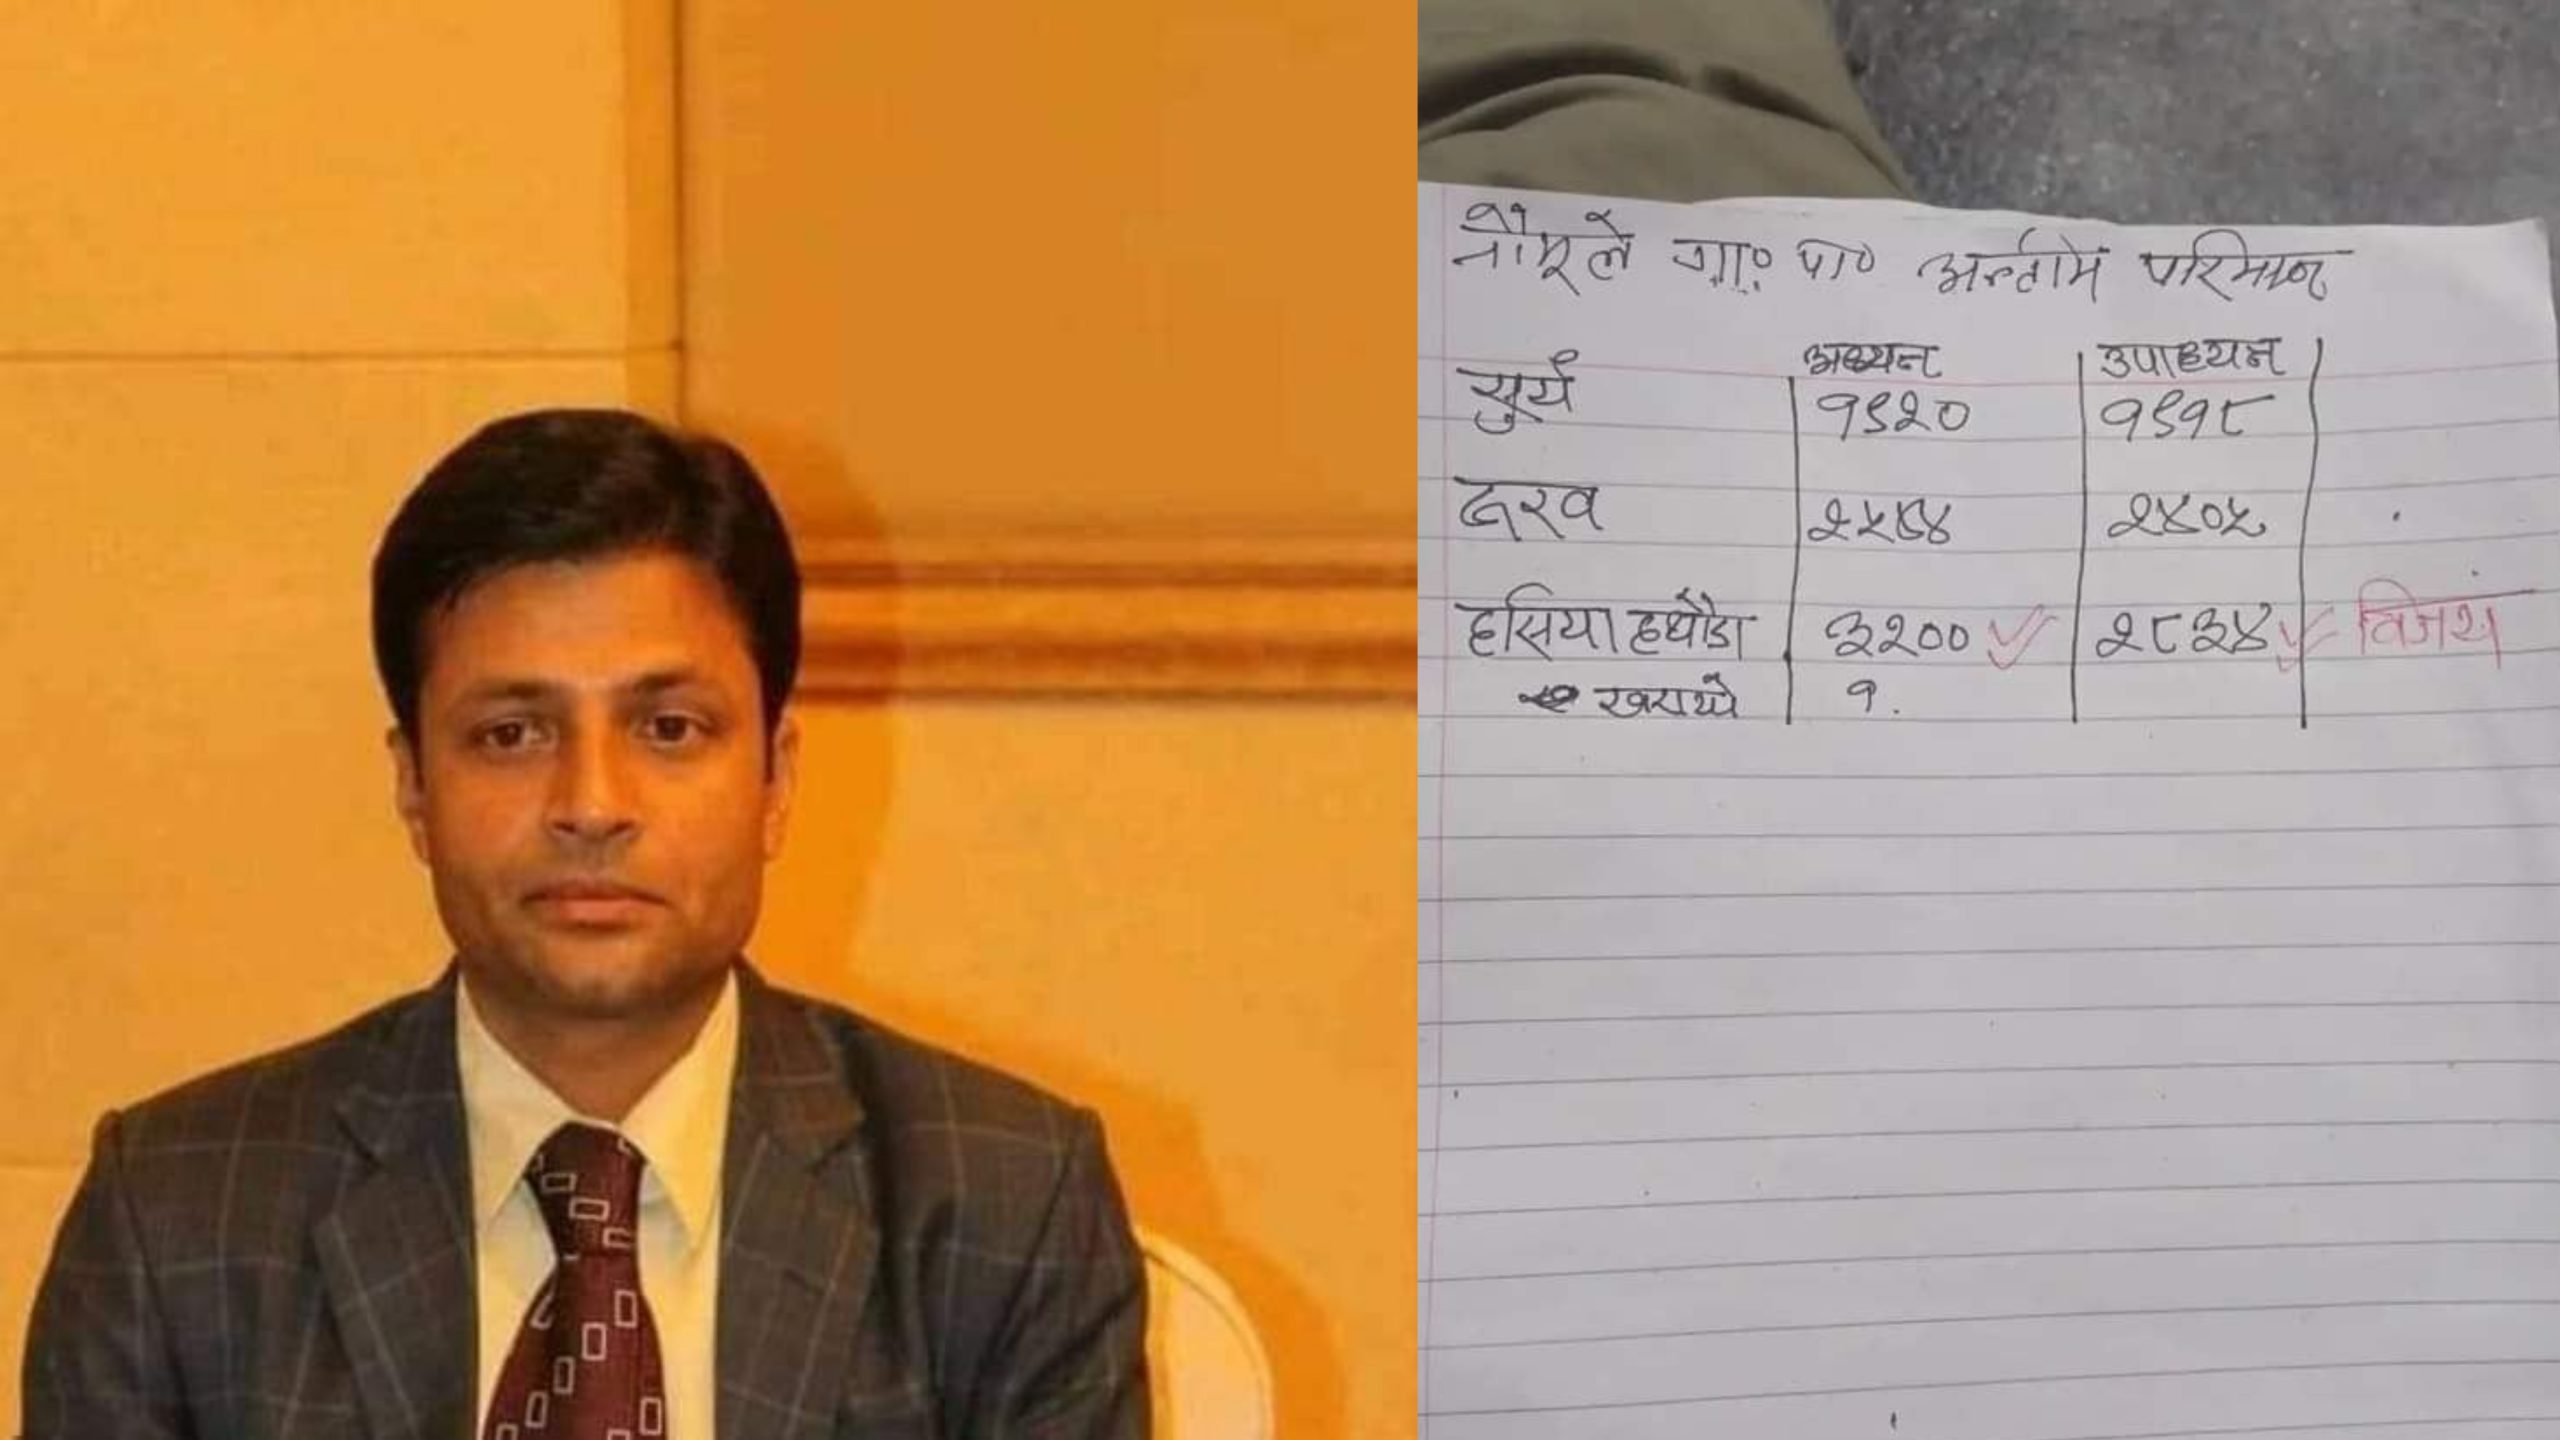 नौमूले गा० पा० अन्तीम परिणाम
अध्यक्ष उपाध्यक्ष
सुर्य १९२० १९१८
रुख २५७४ २४०५
हसिया हथौडा ३२०० २८३४ विजय
१.